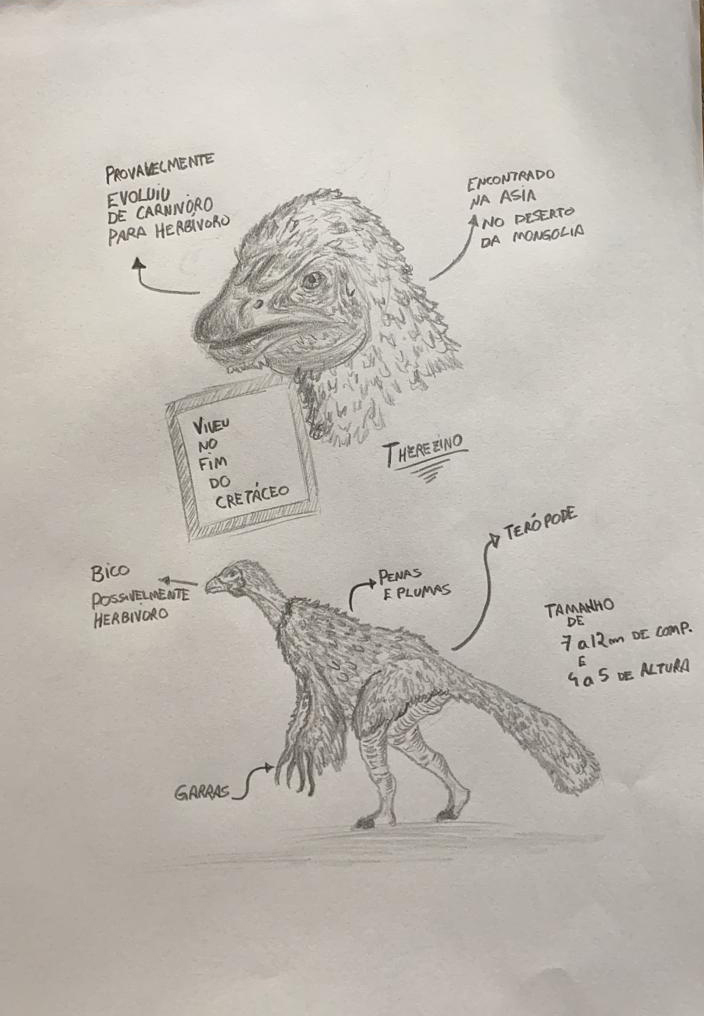 PROVAVELMENTE
EVOLUIU
DE CARNIVÓRO
PARA HERBIVORO
ENCONTRADO
NA ASIA
NO DESERTO
DA MONGOLIA
VIVEU
NO
FIM
DO
CRETÁCEO
THEREZINO
TERÓPODE
BICO
POSSIVELMENTE
HERBIVORO
PENAS
E PLUMAS
TAMANHO
DE
7 a 12m DE COMP.
E
4 a 5 DE ALTURA
GARRAS